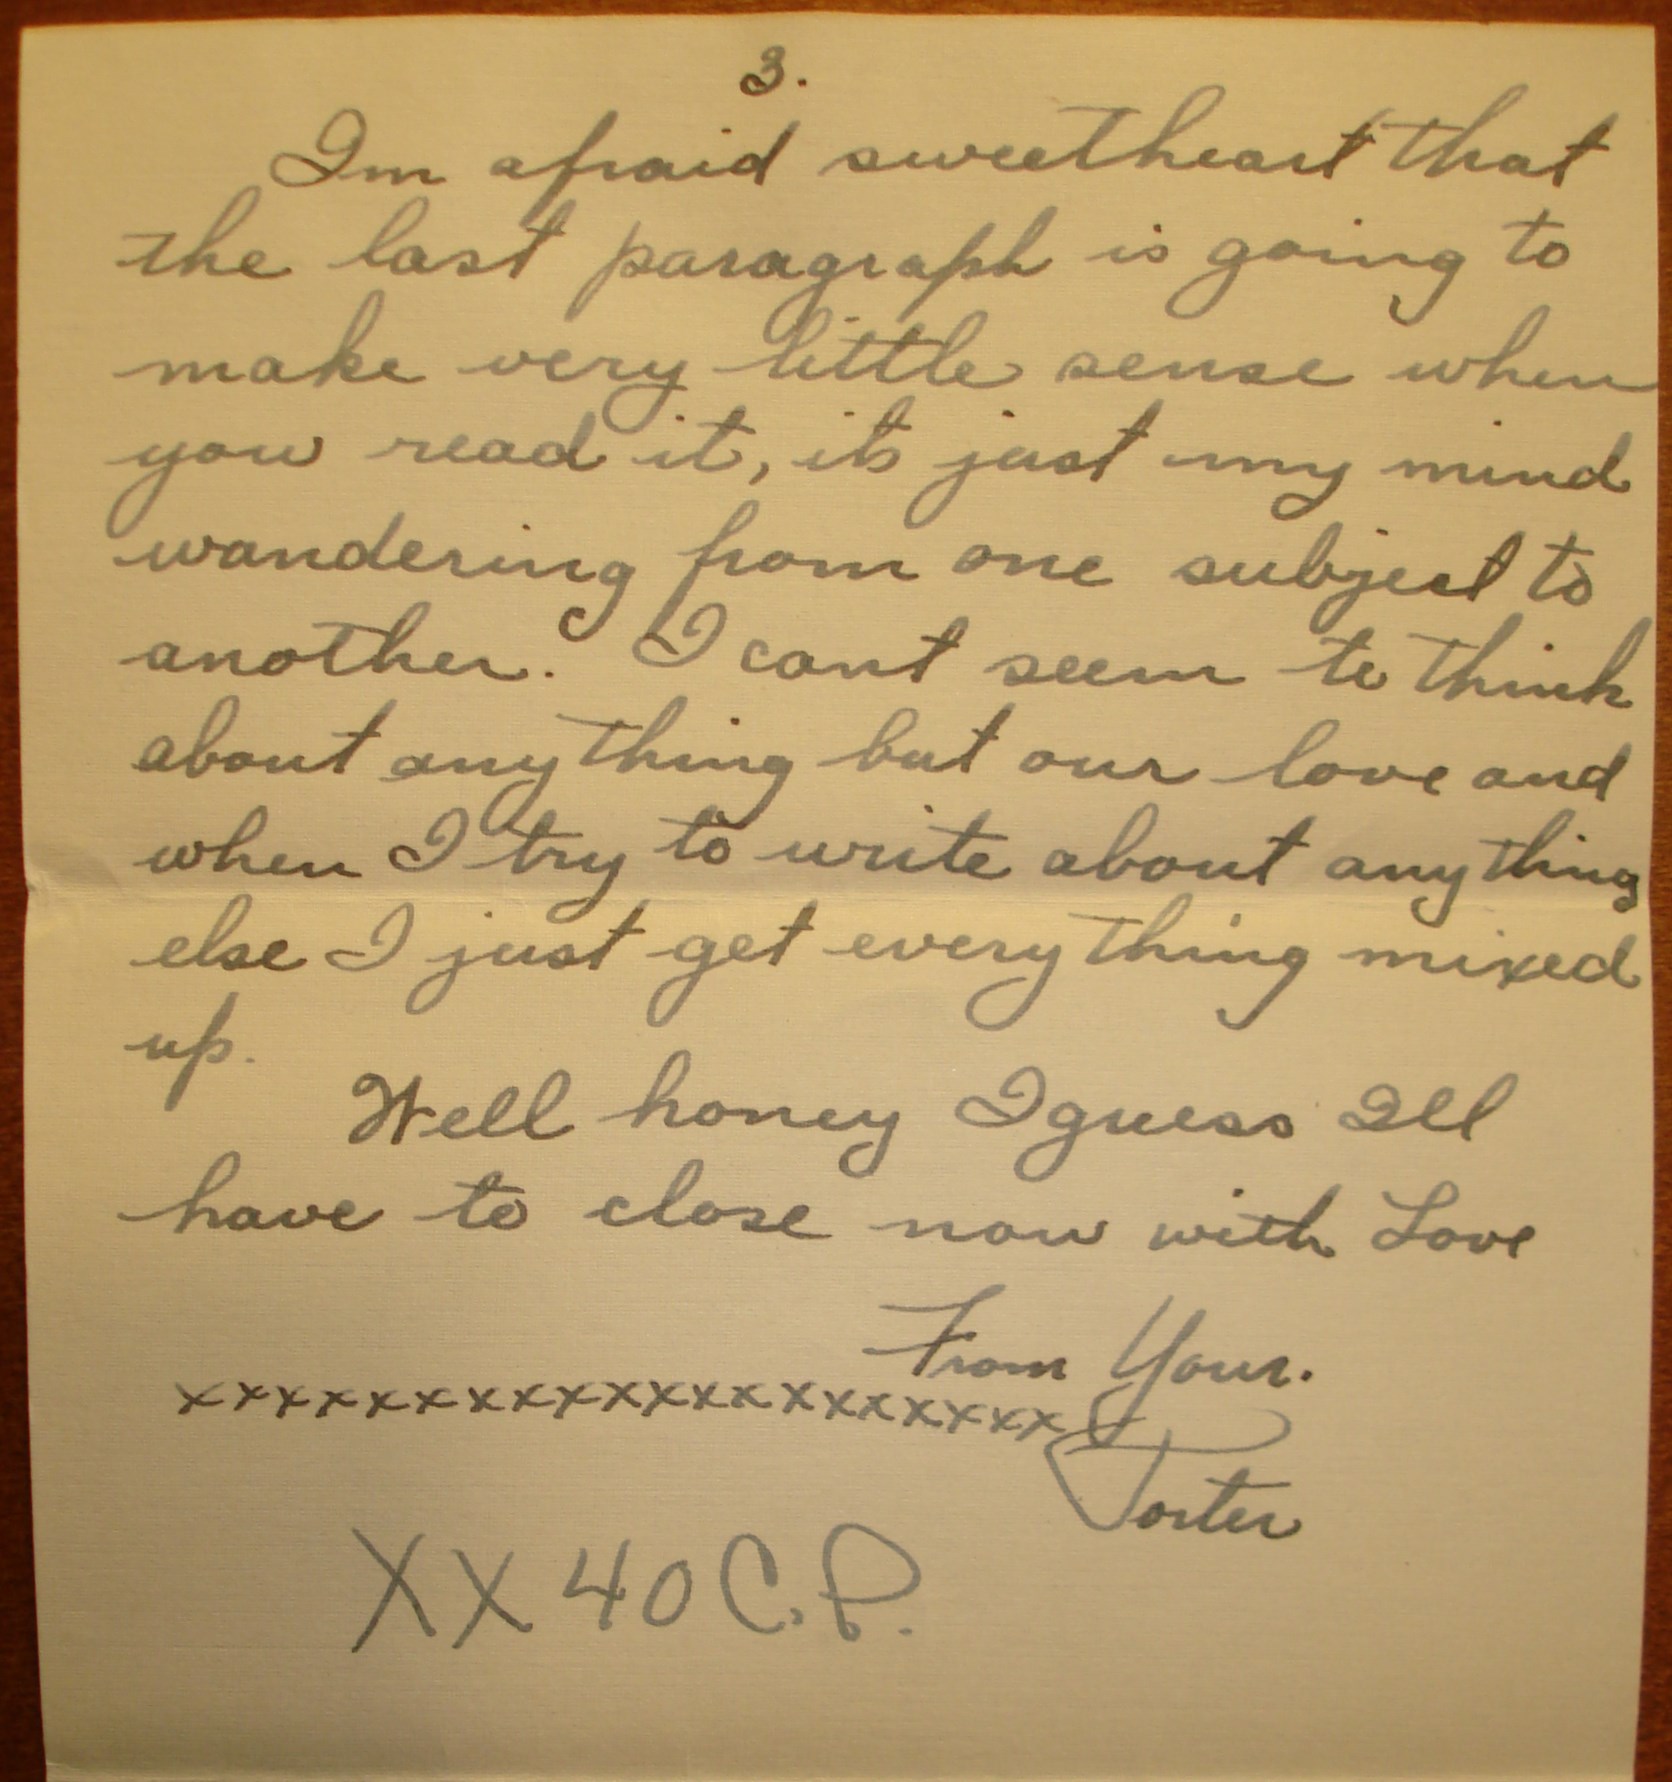 3.
Im afraid sweetheart that
the last paragraph is going to
make very little sense when
you read it, its just my mind
wandering from one subject to
another. I cant seem to think
about anything but our love and
when I try to write about anything
else I just get everything mixed
up.
Well honey I guess Ill
have to close now with Love
From Your.
xxxxxxxxxxxxxxxxxxxxx
Porter
XX 40 C.P.